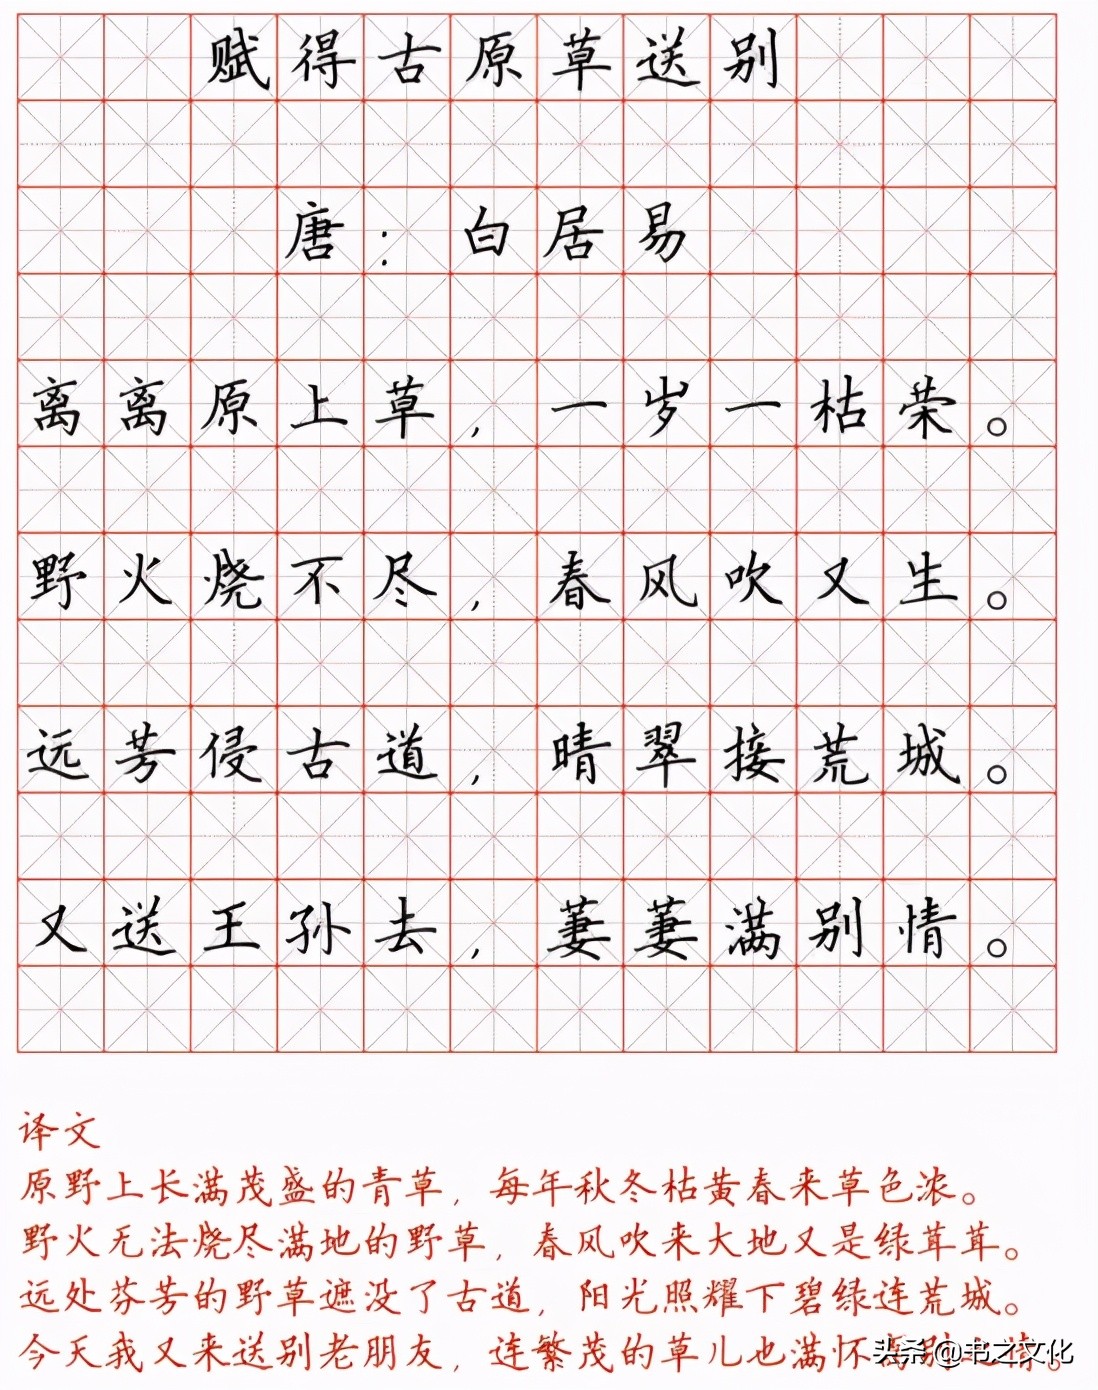 赋得古原草送别
唐：白居易
离离原上草，一岁一枯荣。
野火烧不尽，春风吹又生。
远芳侵古道，晴翠接荒城。
又送王孙去，萋萋满别情。
译文
原野上长满茂盛的青草，每年秋冬枯黄春来草色浓。
野火无法烧尽满地的野草，春风吹来大地又是绿茸茸。
远处芬芳的野草遮没了古道，阳光照耀下碧绿连荒城。
今天我又来送别老朋友，连繁茂的草儿也满怀离别之情。
头条@书之文化